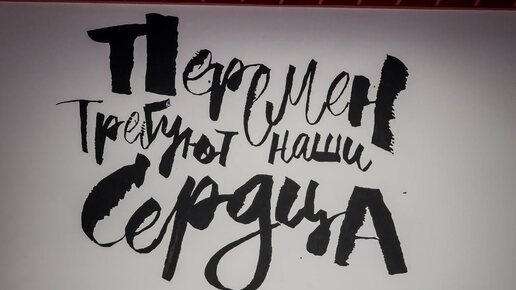 Перемен
требуют наши
сердца